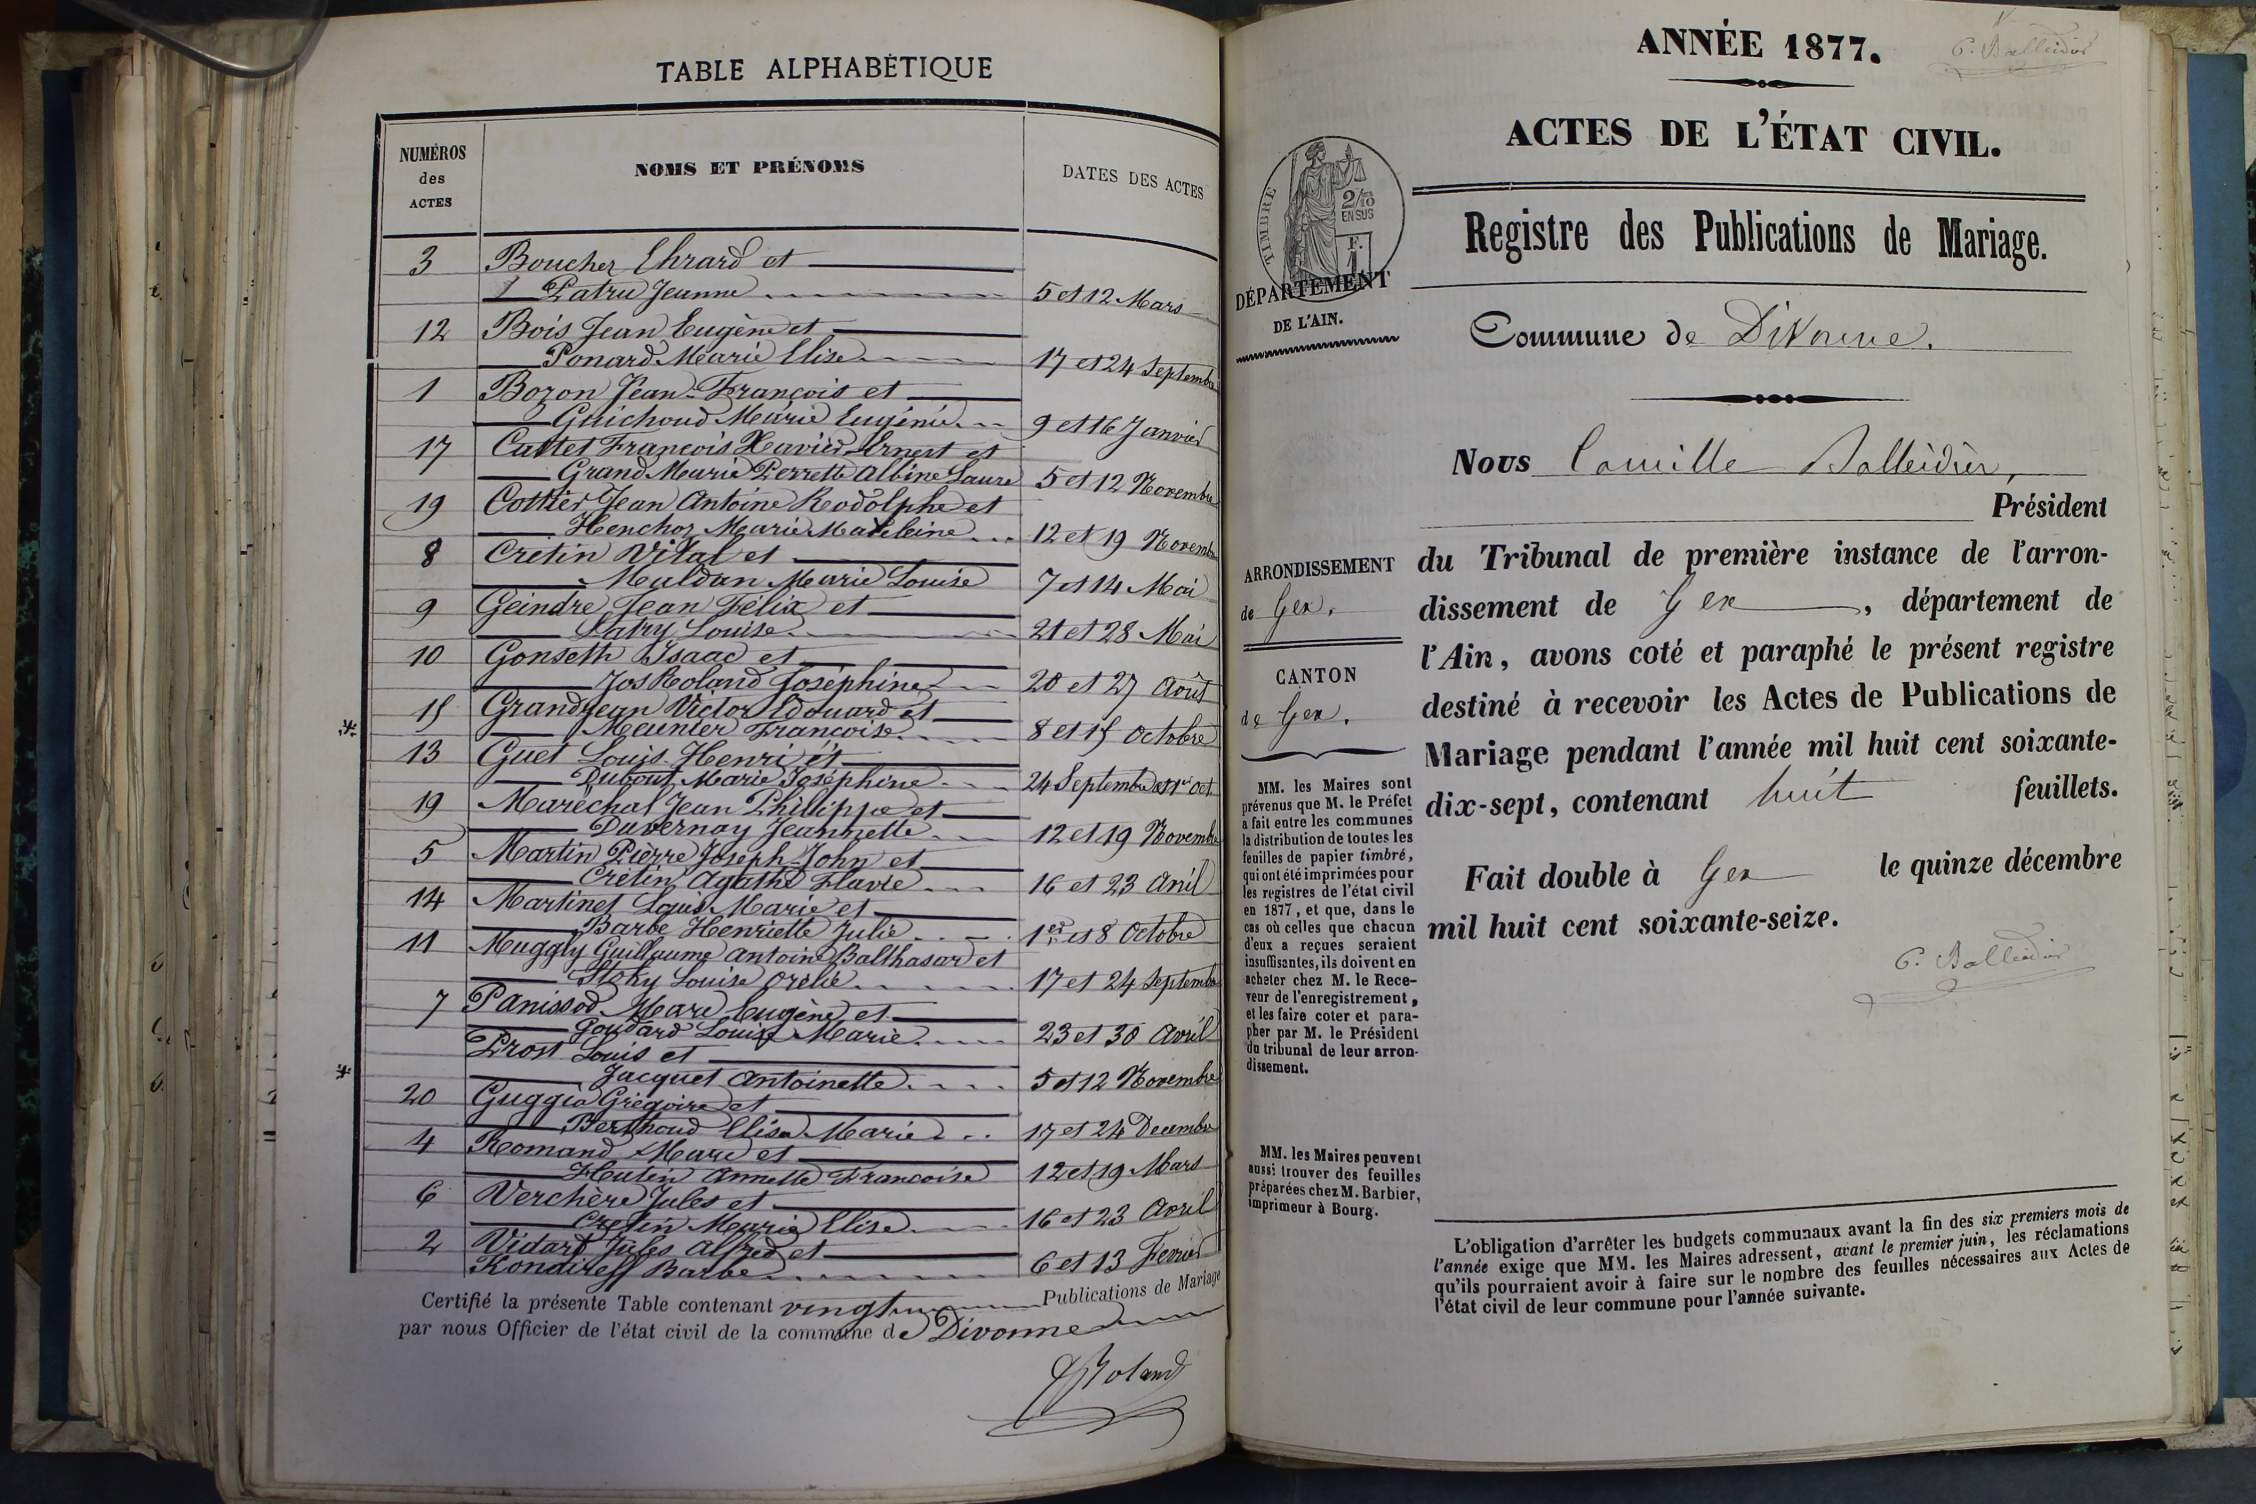 TABLE ALPHABÉTIQUE
NUMÉROS
des
ACTES
NOMS ET PRÉNOMS
DATES DES ACTES
3 Boucher Ehrard et
Patru Jeanne 5 et 12 Mars
12 Bois Jean Eugène et
Ponard Marie Elise 17 et 24 Septembre
1 Bozon Jean-François et
Guichoud Marie Eugénie 9 et 16 Janvier
17 Cuttet François Xavier Ernest et
Grand Marie Perrette Albine Laure 5 et 12 Novembre
19 Cottier Jean Antoine Rodolphe et
Henchoz Marie Madeleine 12 et 19 Novembre
8 Crétin Vital et
Muldan Marie Louise 7 et 14 Mai
9 Geindre Jean Félix et
Patry Louise 21 et 28 Mai
10 Gonseth Isaac et
Jos Roland Joséphine 20 et 27 Août
15 Grandjean Victor Edouard et
Meunier Françoise 8 et 15 Octobre
13 Guet Louis Henri et
Dubout Marie Joséphine 24 Septembre et 1er Oct.
19 Maréchal Jean Philippe et
Duvernay Jeannette 12 et 19 Novembre
5 Martin Pierre Joseph-John et
Crétin Agathe Flavie 16 et 23 Avril
14 Martinet Louis Marie et
Barbe Henriette Julie 1er et 8 Octobre
11 Muggly Guillaume Antoine Balthasar et
Stoky Louise Orélie 17 et 24 Septembre
7 Panissod Marc Eugène et
Goudard Louise Marie 23 et 30 Avril
Prost Louis et
Jacquet Antoinette 5 et 12 Novembre
20 Guggia Grégoire et
Berthoud Elisa Marie 17 et 24 Decembre
4 Romand Marc et
Hutin Annette Françoise 12 et 19 Mars
6 Verchère Jules et
Crétin Marie Elise 16 et 23 Avril
2 Vidart Jules Alfred et
Kondireff Barbe 6 et 13 Fevrier
Certifié la présente Table contenant vingt Publications de Mariage
par nous Officier de l'état civil de la commune de Divonne
Roland
ANNÉE 1877.
C. Balleidier
ACTES DE L'ÉTAT CIVIL.
TIMBRE
2/10
EN SUS
F.
1
Registre des Publications de Mariage.
DÉPARTEMENT
DE L'AIN.
Commune de Divonne.
Nous Camille Balleidier,
Président
ARRONDISSEMENT
de Gex.
CANTON
de Gex.
du Tribunal de première instance de l'arron-
dissement de Gex, département de
l'Ain, avons coté et paraphé le présent registre
destiné à recevoir les Actes de Publications de
Mariage pendant l'année mil huit cent soixante-
dix-sept, contenant huit feuillets.
Fait double à Gex le quinze décembre
mil huit cent soixante-seize.
C. Balleidier
MM. les Maires sont
prévenus que M. le Préfet
a fait entre les communes
la distribution de toutes les
feuilles de papier timbré,
qui ont été imprimées pour
les registres de l'état civil
en 1877, et que, dans le
cas où celles que chacun
d'eux a reçues seraient
insuffisantes, ils doivent en
acheter chez M. le Rece-
veur de l'enregistrement,
et les faire coter et para-
pher par M. le Président
du tribunal de leur arron-
dissement.
MM. les Maires peuvent
aussi trouver des feuilles
préparées chez M. Barbier,
imprimeur à Bourg.
L'obligation d'arrêter les budgets communaux avant la fin des six premiers mois de
l'année exige que MM. les Maires adressent, avant le premier juin, les réclamations
qu'ils pourraient avoir à faire sur le nombre des feuilles nécessaires aux Actes de
l'état civil de leur commune pour l'année suivante.